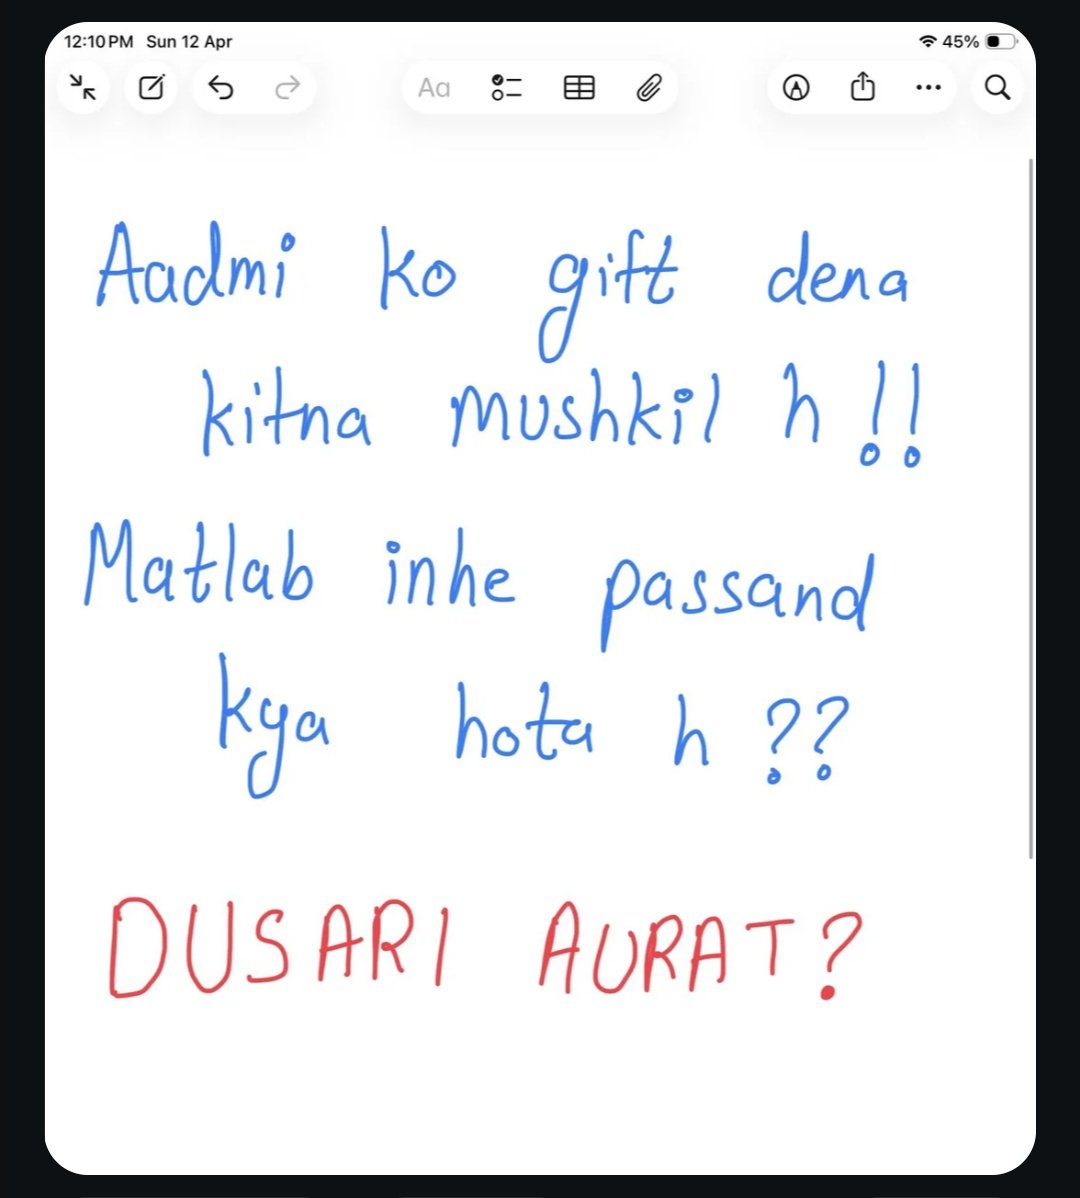 12:10 PM Sun 12 Apr 45%
Aa
Aadmi ko gift dena
kitna mushkil h !!
Matlab inhe passand
kya hota h ??
DUSARI AURAT?